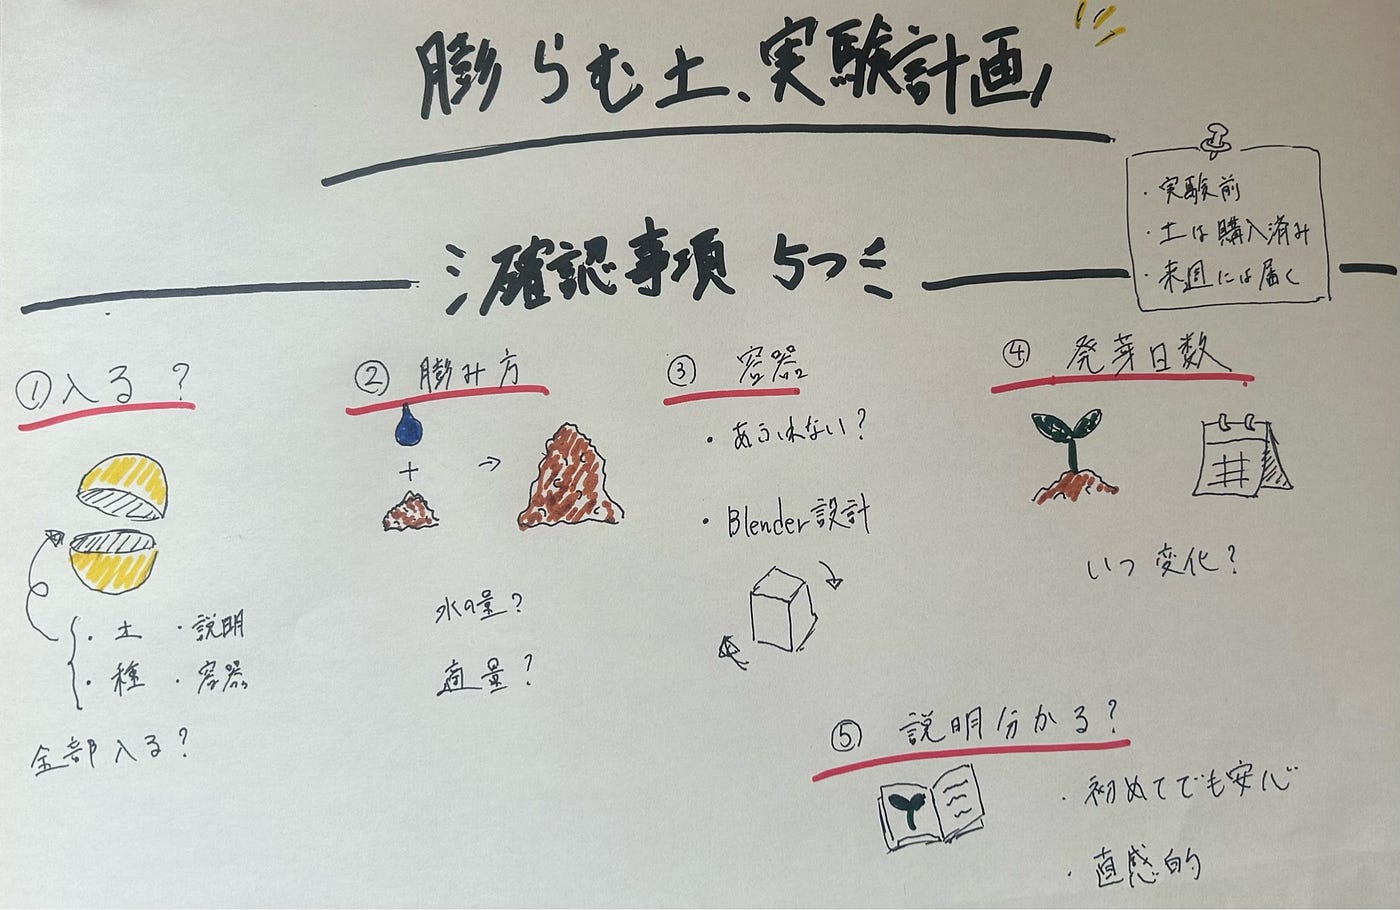 膨らむ土、実験計画
・実験前
・土は購入済み
・来週には届く
確認事項 5つ
①入る?
・土 ・説明
・種 ・容器
全部入る?
② 膨み方
+ →
水の量?
適量?
③ 容器
・あふれない?
・Blender設計
④ 発芽日数
いつ変化?
⑤ 説明分かる?
・初めてでも安心
・直感的